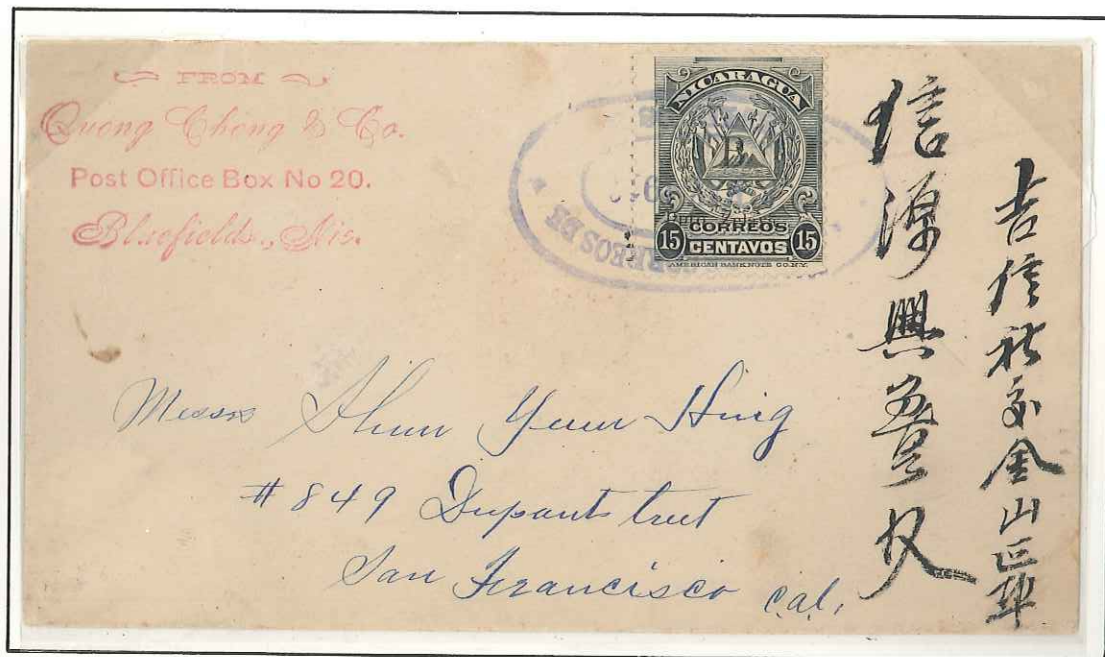 FROM
Quong Chong & Co.
Post Office Box No 20.
Bluefields, Nic.
NICARAGUA
B
CORREOS
15 CENTAVOS 15
AMERICAN BANK NOTE CO. N.Y.
CORREOS DE
Messrs Shun Yuen Hing
# 849 Dupont street
San Francisco Cal,
吉信祈交金山正埠
信源興寶號收